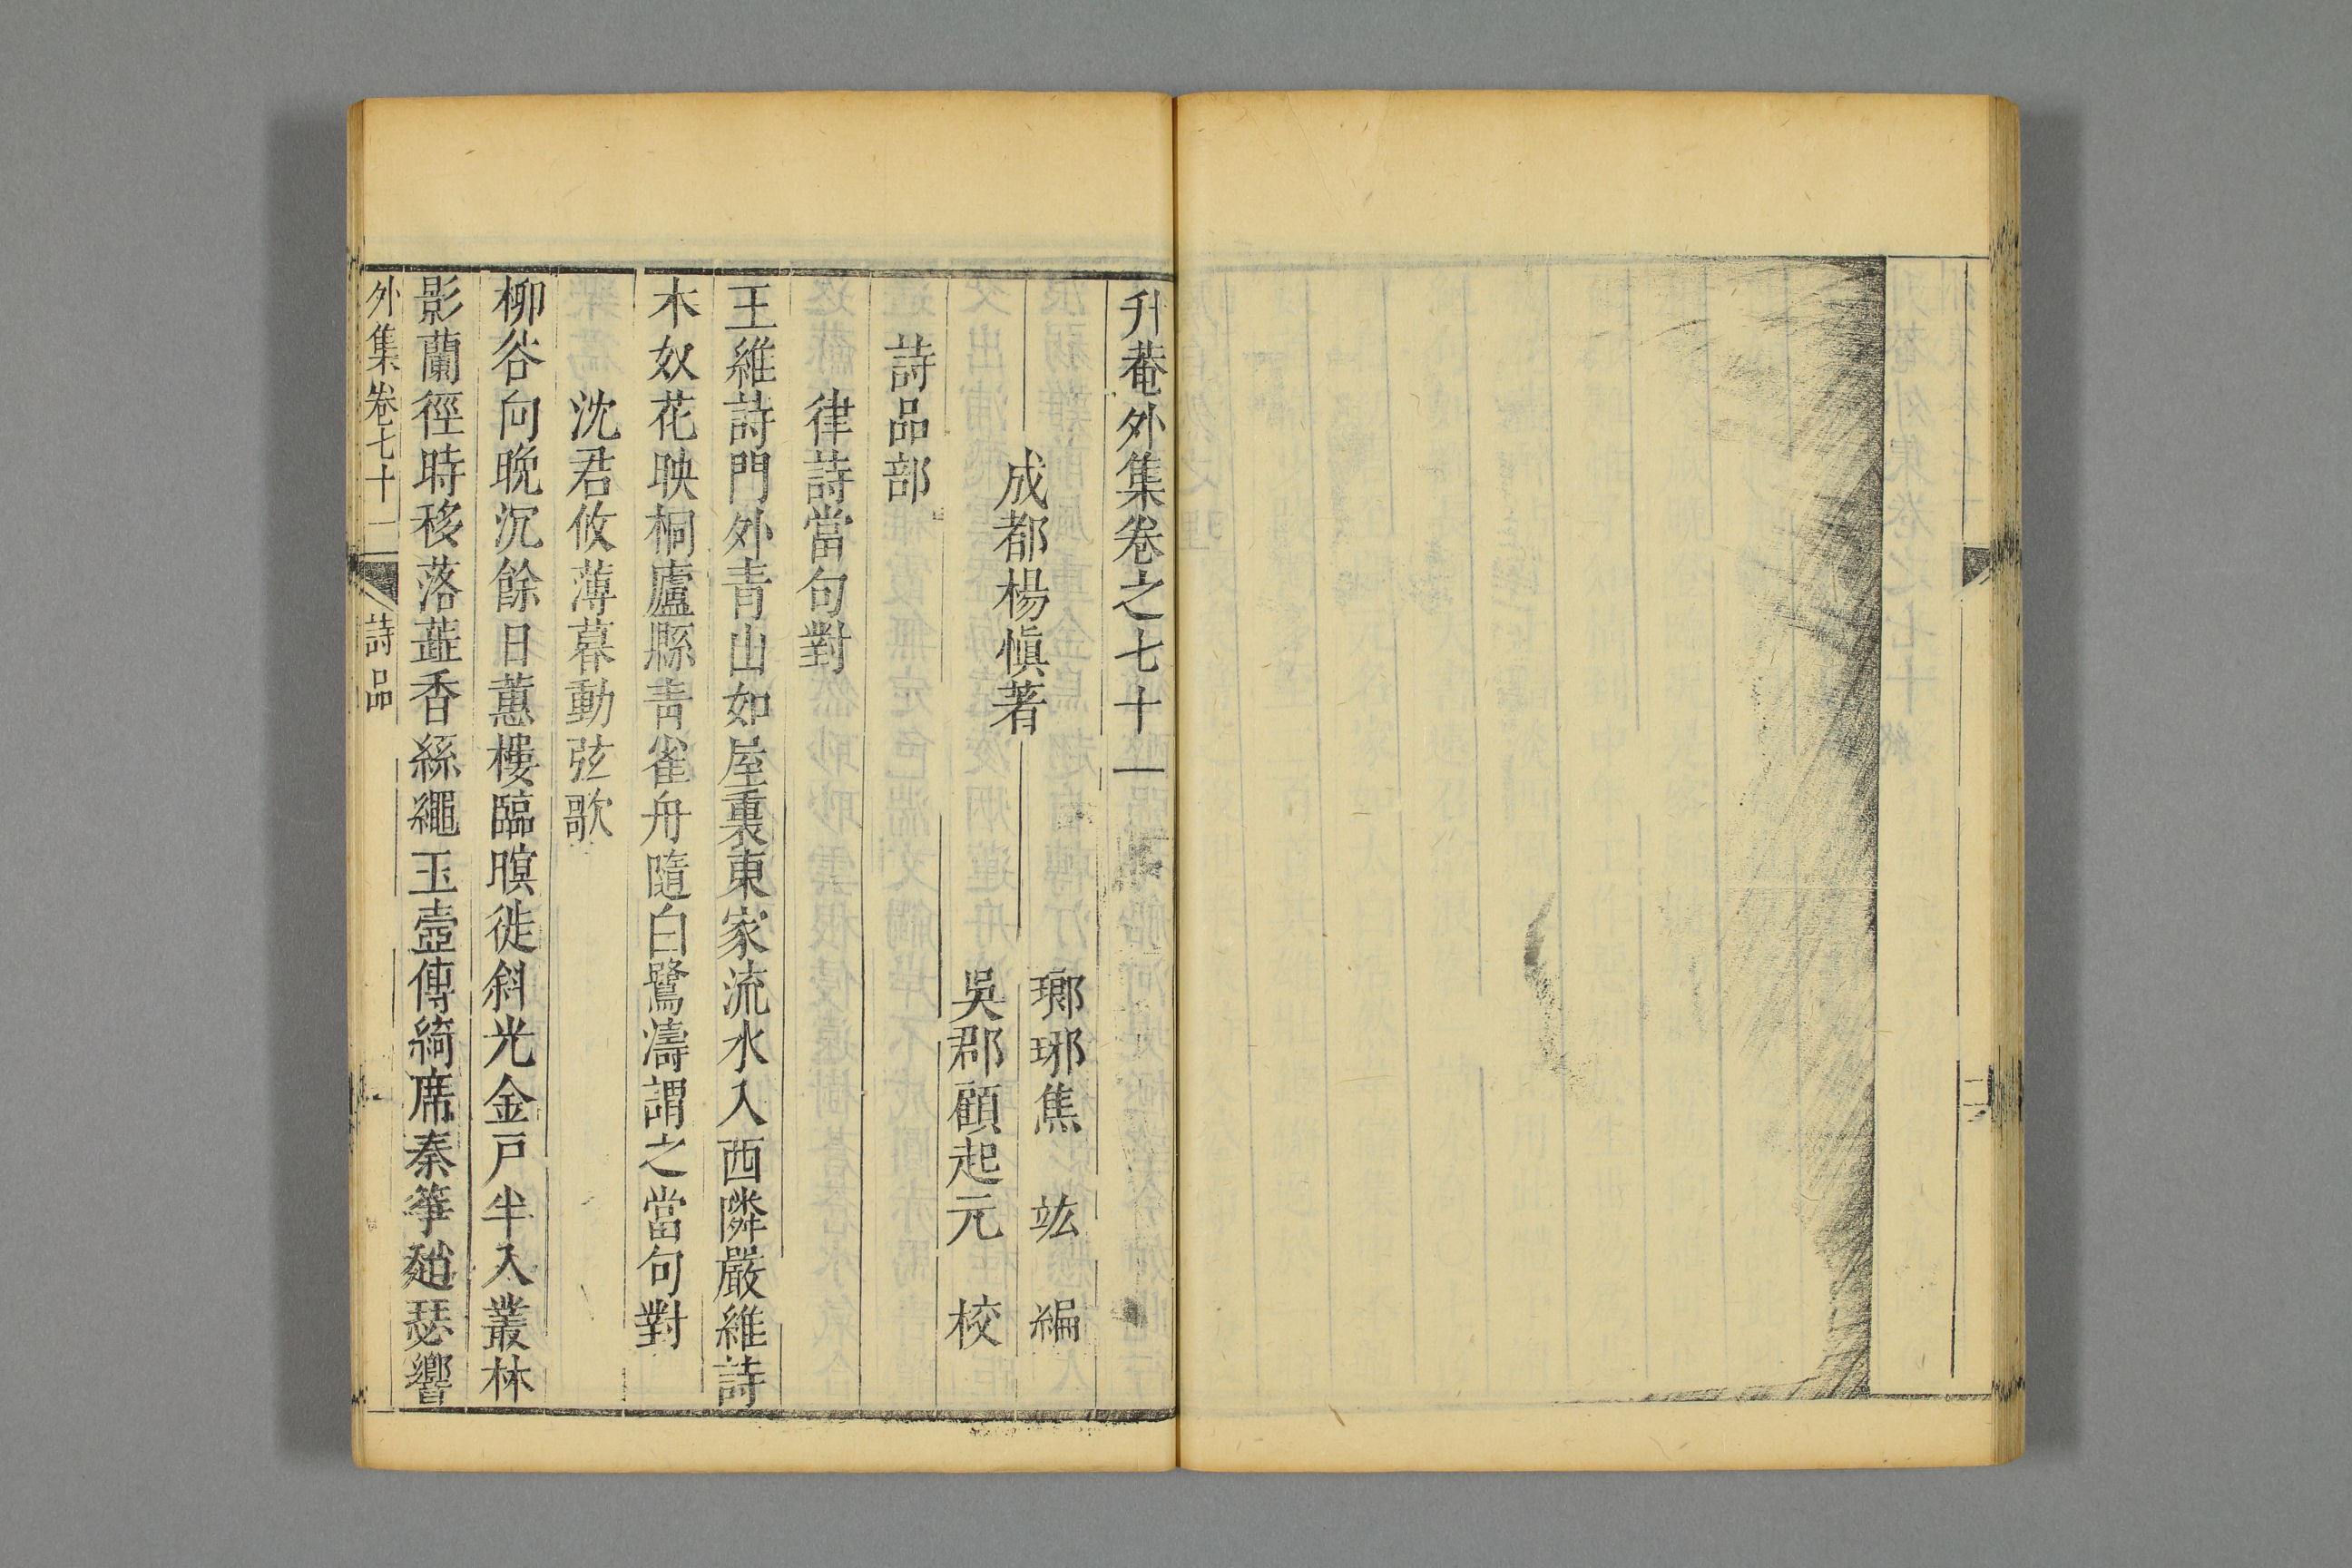 升菴外集卷之七十一
成都楊慎著
瑯琊焦竑編
吳郡顧起元校
詩品部
律詩當句對
王維詩門外青山如屋裏東家流水入西隣嚴維詩
木奴花映桐廬縣青雀舟隨白鷺濤謂之當句對
沈君攸薄暮動弦歌
柳谷向晚沉餘日蕙樓臨暝徙斜光金戸半入叢林
影蘭徑時移落蘂香絲繩玉壺傳綺席秦筝趙瑟響
外集卷七十一
詩品
一